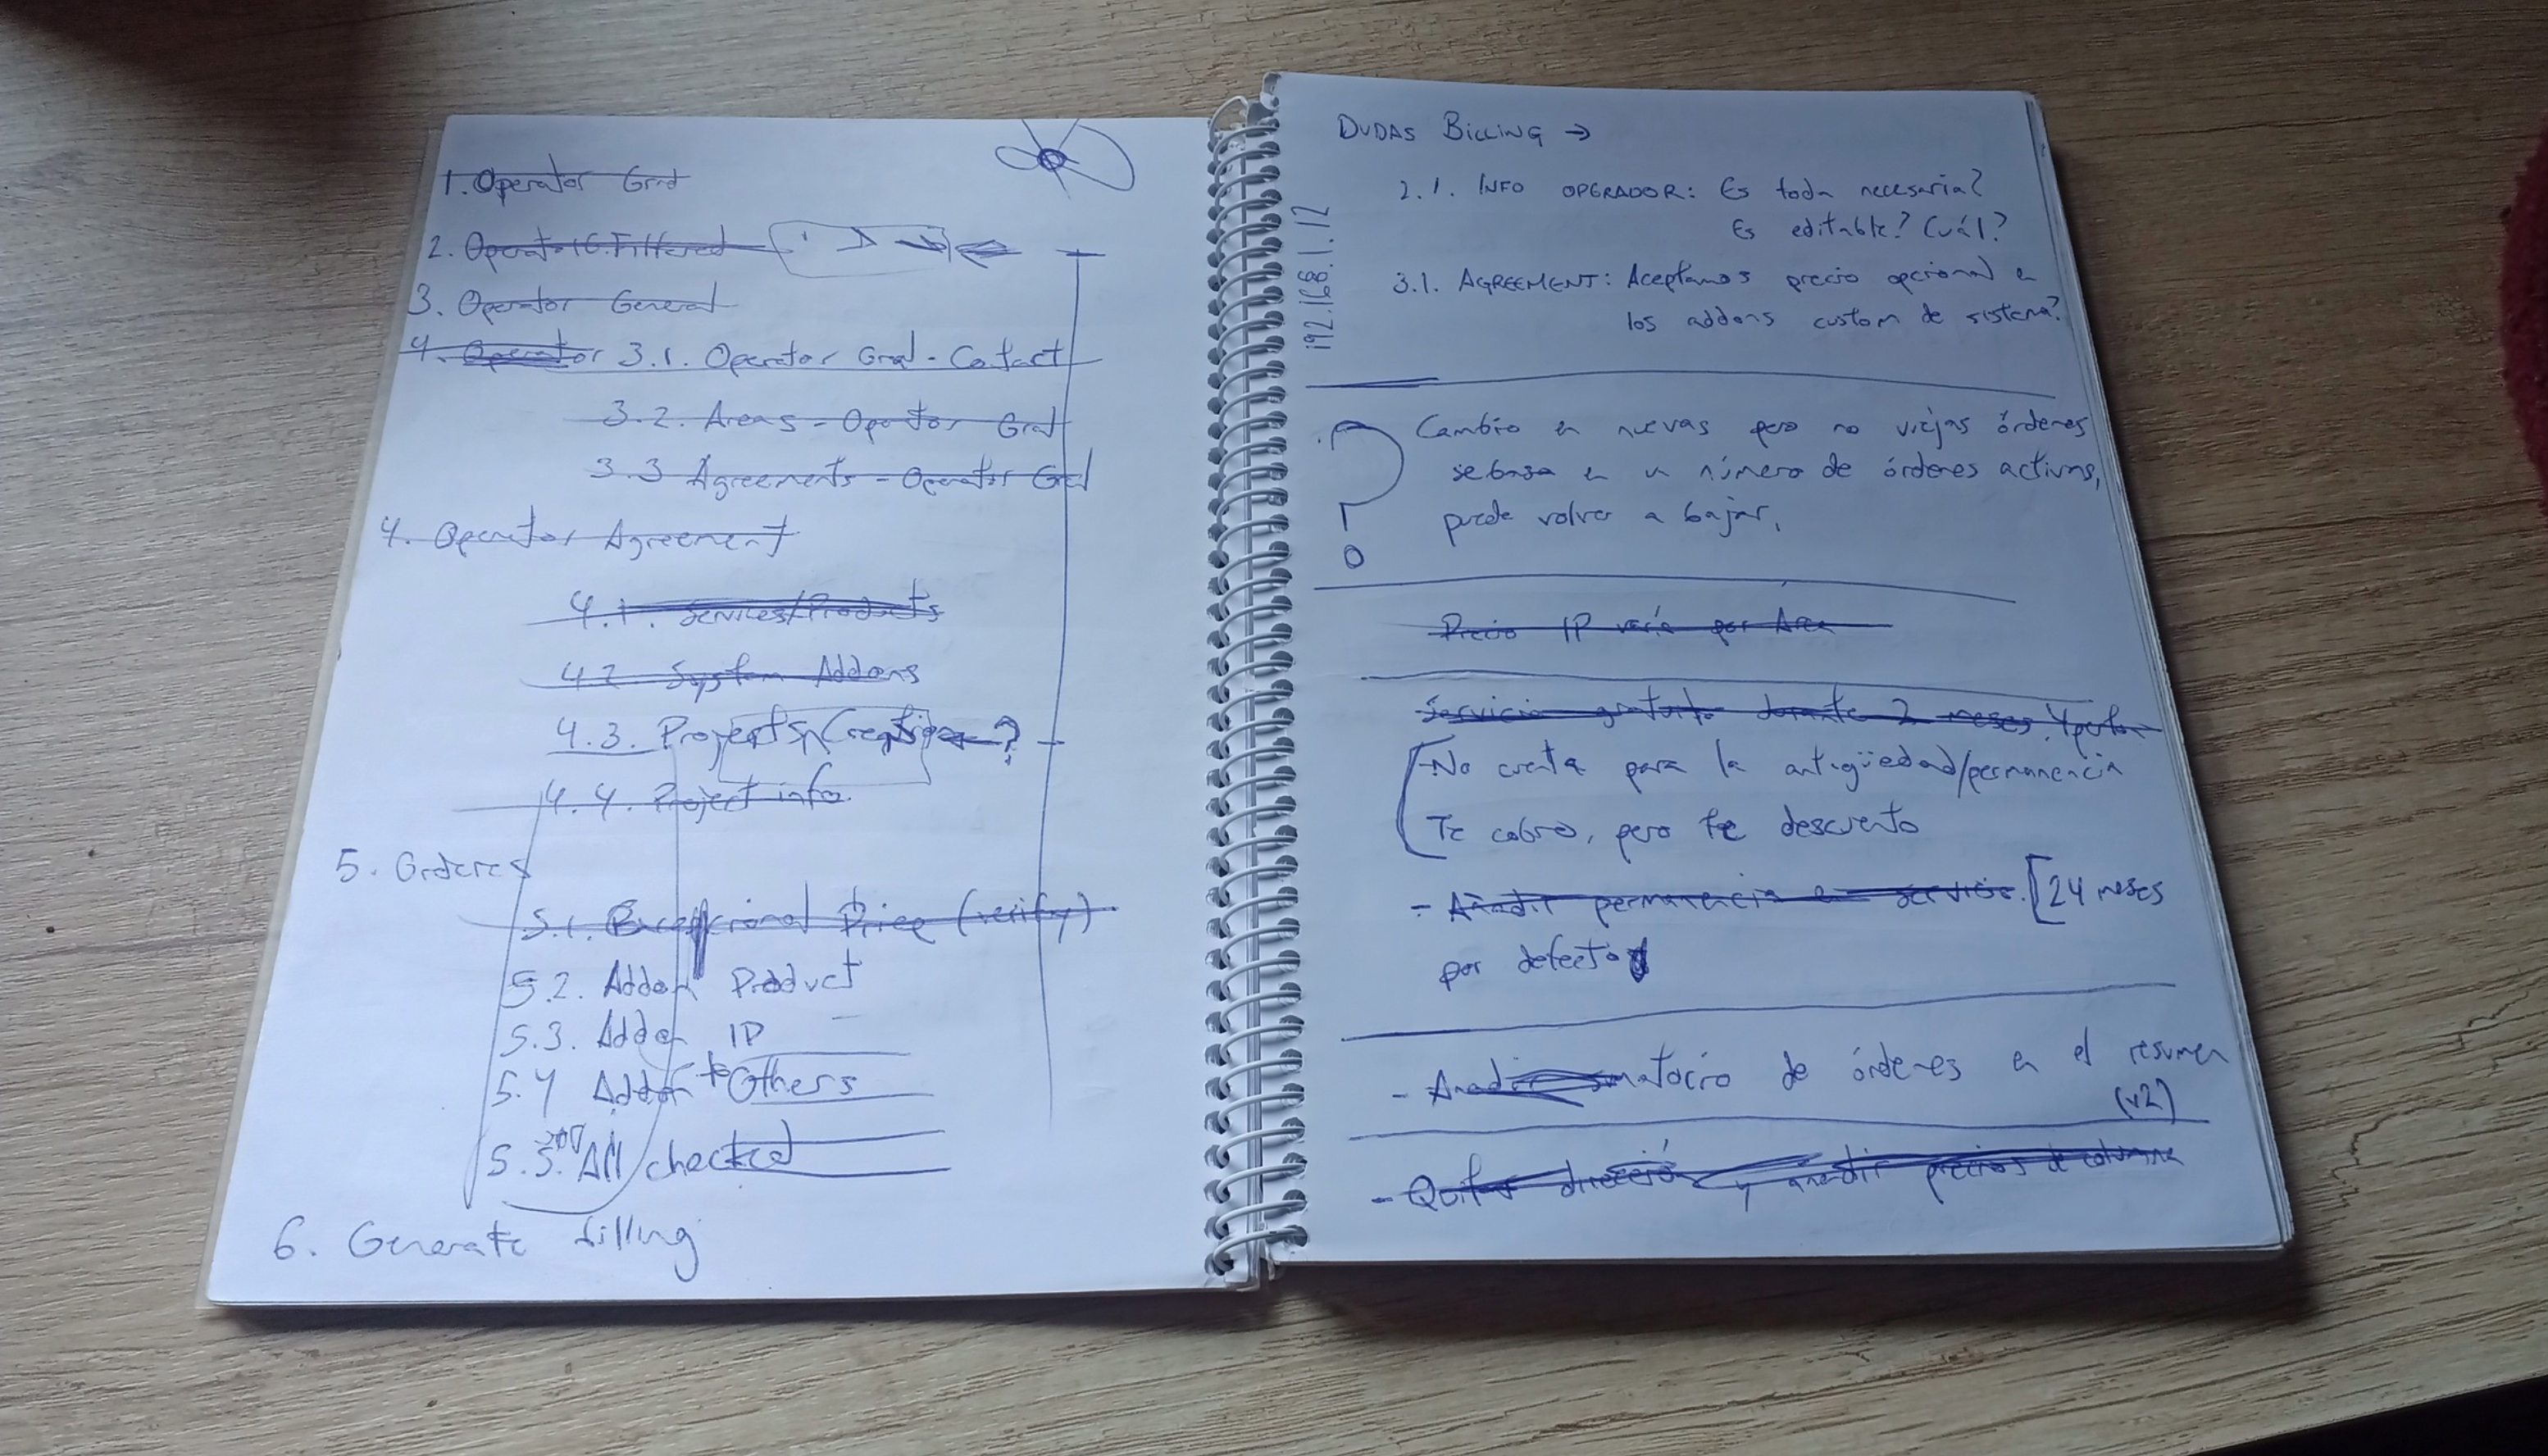 1. Operator Grid
2. Operator G. Filtered
3. Operator General
4. Operator 3.1. Operator Gral - Cotact
3.2. Areas - Opertor Gral
3.3 Agreements - Operator Gral
4. Operator Agreement
4.1. Services/Products
4.2 System Addons
4.3. Projects ?
4.4. Project info.
5. Orderes
5.1. Excepcional Price (verify)
5.2. Addon Product
5.3. Addon IP
5.4 Addon to Others
5.5. All checked
6. Generate billing
DUDAS BILLING →
192.168.1.12
2.1. INFO OPERADOR: Es toda necesaria?
Es editable? Cuál?
3.1. AGREEMENT: Aceptamos precio opcional en
los addons custom de sistema?
? Cambio en nuevas pero no viejas órdenes
se basa en un número de órdenes activas,
puede volver a bajar.
Precio IP varía por Área
Servicio gratuito durante 2 meses.
No cuenta para la antigüedad/permanencia
Te cobro, pero te descuento
- Añadir permanencia en servicios. [24 meses
por defecto
- Añadir sumatorio de órdenes en el resumen
(v2)
- Quitar dirección y añadir precios de columna